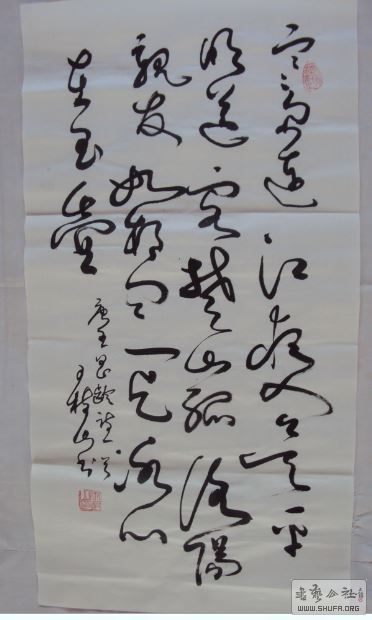 寒雨連江夜入吴平
明送客楚山孤洛陽
親友如相问一片冰心
在玉壺
唐王昌齡詩
书艺公社
WWW.SHUFA.ORG